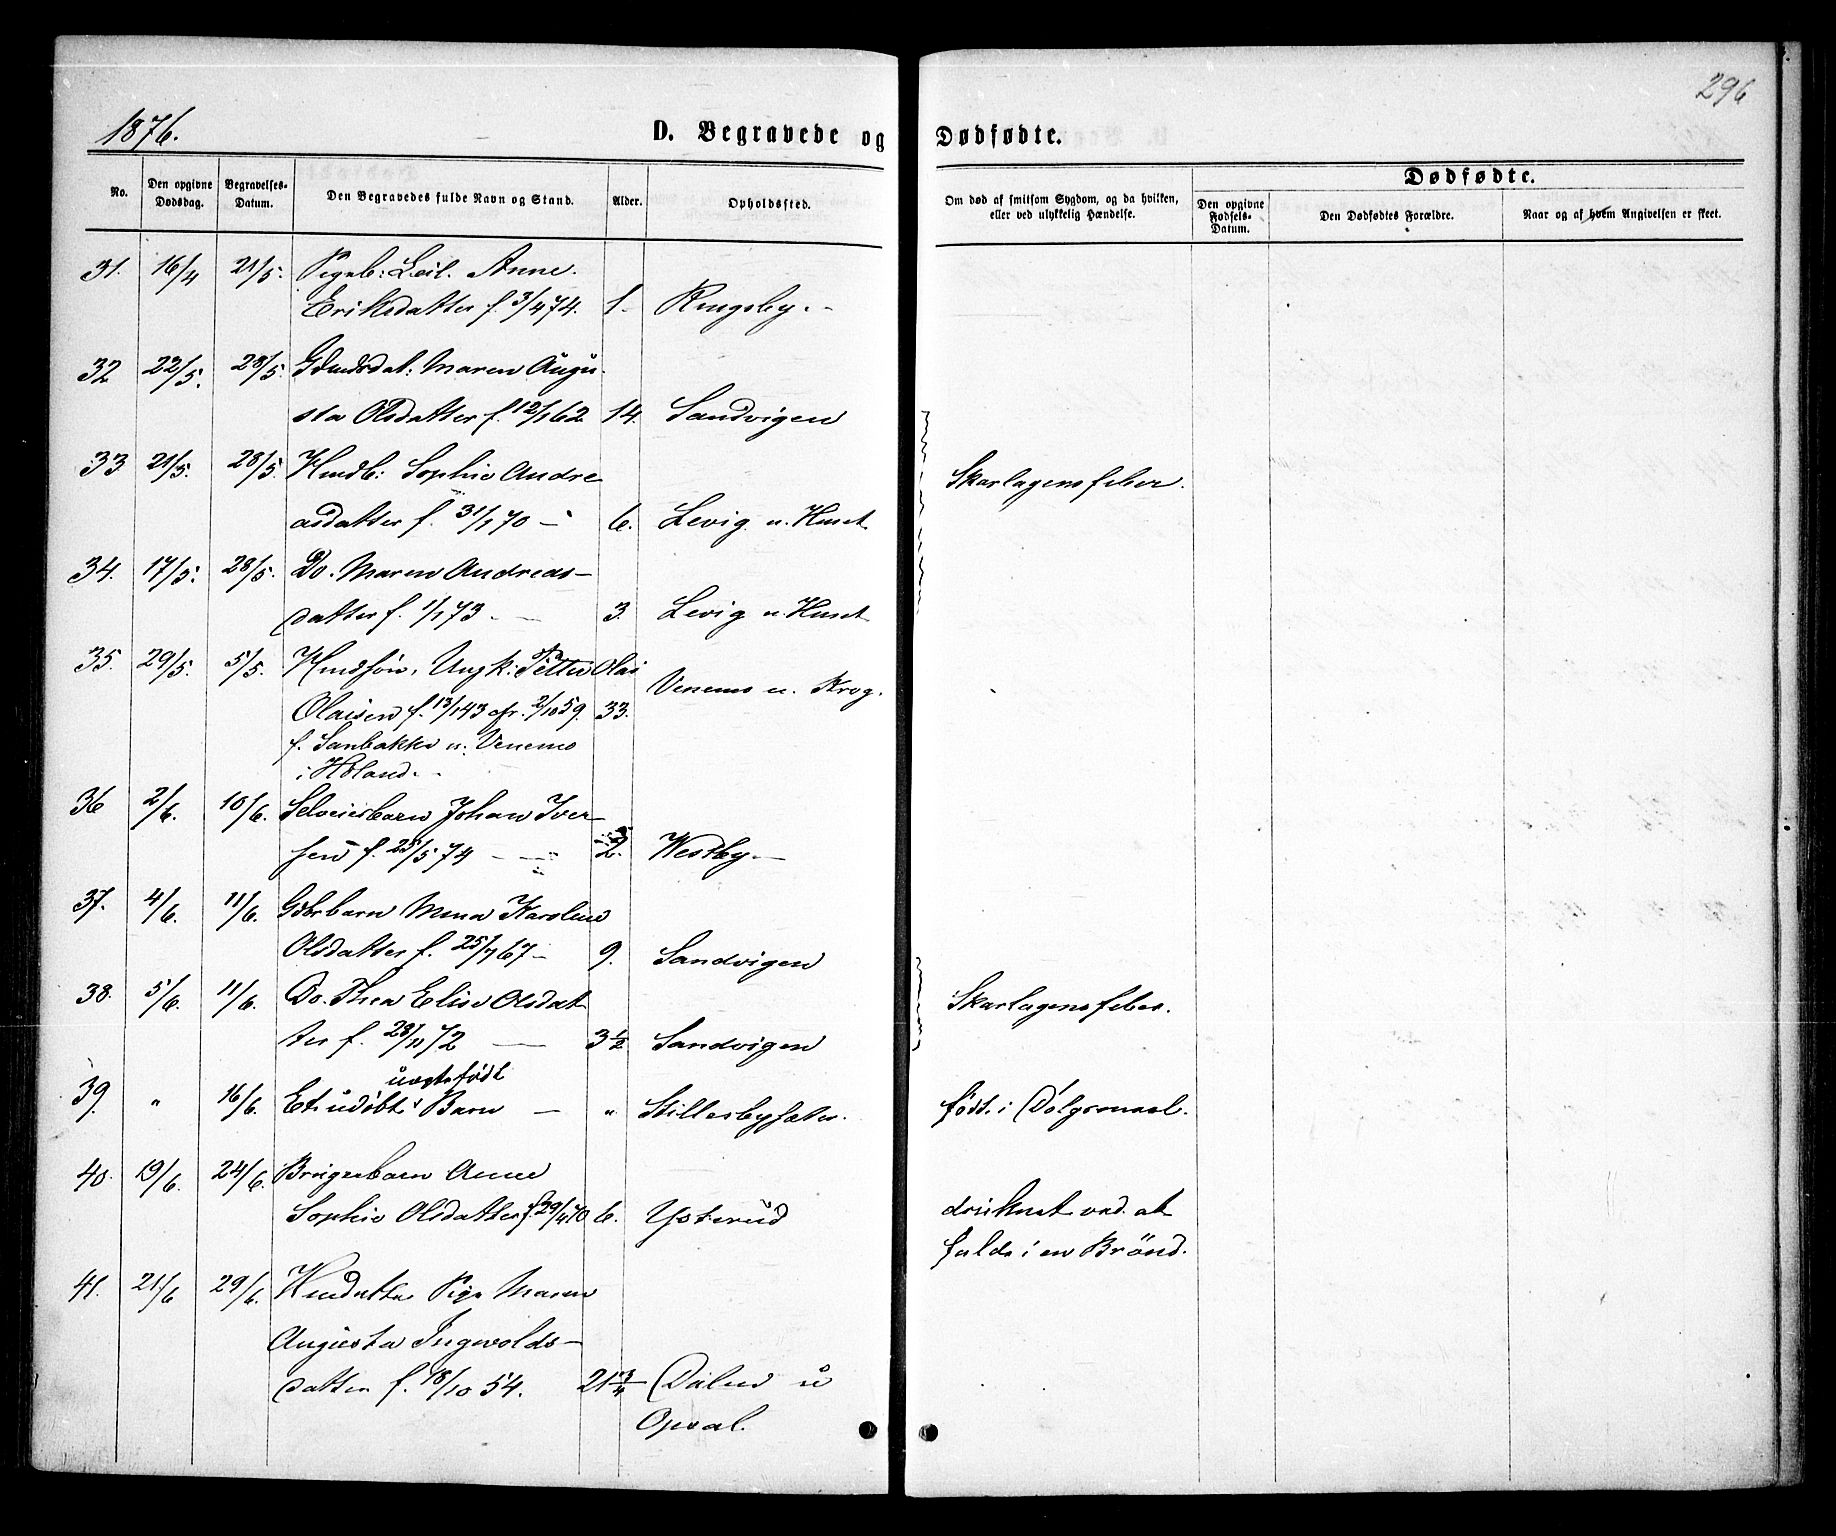 296
1876.
D. Begravede og Dødfødte.
No.
Den opgivne Dødsdag.
Begravelses-Datum.
Den Begravedes fulde Navn og Stand.
Alder.
Opholdssted.
Om død af smitsom Sygdom, og da hvilken, eller ved ulykkelig Hændelse.
Dødfødte.
Den opgivne Fødsels-Datum.
Den Dødfødtes Forældre.
Naar og af hvem Angivelsen er skeet.
31. 16/4 21/5. Pigeb: Leil. Anne
Eriksdatter f. 3/4 74. 1. Ringsby.
32 22/5. 28/5. Gdmdsdat: Maren Augu-
sta Olsdatter f. 12/1 62 14. Sandvigen
33 21/5. 28/5. Hmdb: Sophie Andre
asdatter f. 31/1 70 - 6. Levig u. Huset
Skarlagensfeber.
34. 17/5. 28/5. Do. Maren Andreas-
datter f. 1/1 73. - 3. Levig u. Huset
35. 29/5. 5/5. Hmdsøn, Ungk: Petter Olai
Olaisen f. 13/1 43 cfr. 2/10 59. 33. Venemo u. Krog.
f. Sanbakke u. Venemo
i Höland.
36 2/6. 10/6. Selveierbarn Johan Iver-
sen f. 25/5 74 - 2. Westby.
37. 4/6. 11/6. Gdbrbarn Mina Karoline
Olsdatter f. 25/7 67 - 9. Sandvigen
38. 5/6. 11/6. Do. Thea Elise Olsdat
ter f. 28/11 72 - 3 1/2 Sandvigen
Skarlagensfeber.
uægtefödt
39. " 16/6. Et udöbt Barn - " Stillesbysæter.
födt i Dølgsmaal.
40. 19/6. 24/6. Brugerbarn Anne
Sophie Olsdatter f. 29/4 70 6. Ysterud
druknet ved at
falde i en Brönd.
41. 21/6 29/6. Hmdatter Pige Maren
Augusta Ingwolds-
datter f. 18/10 54. 21 3/4 Dalen u
Opsal.